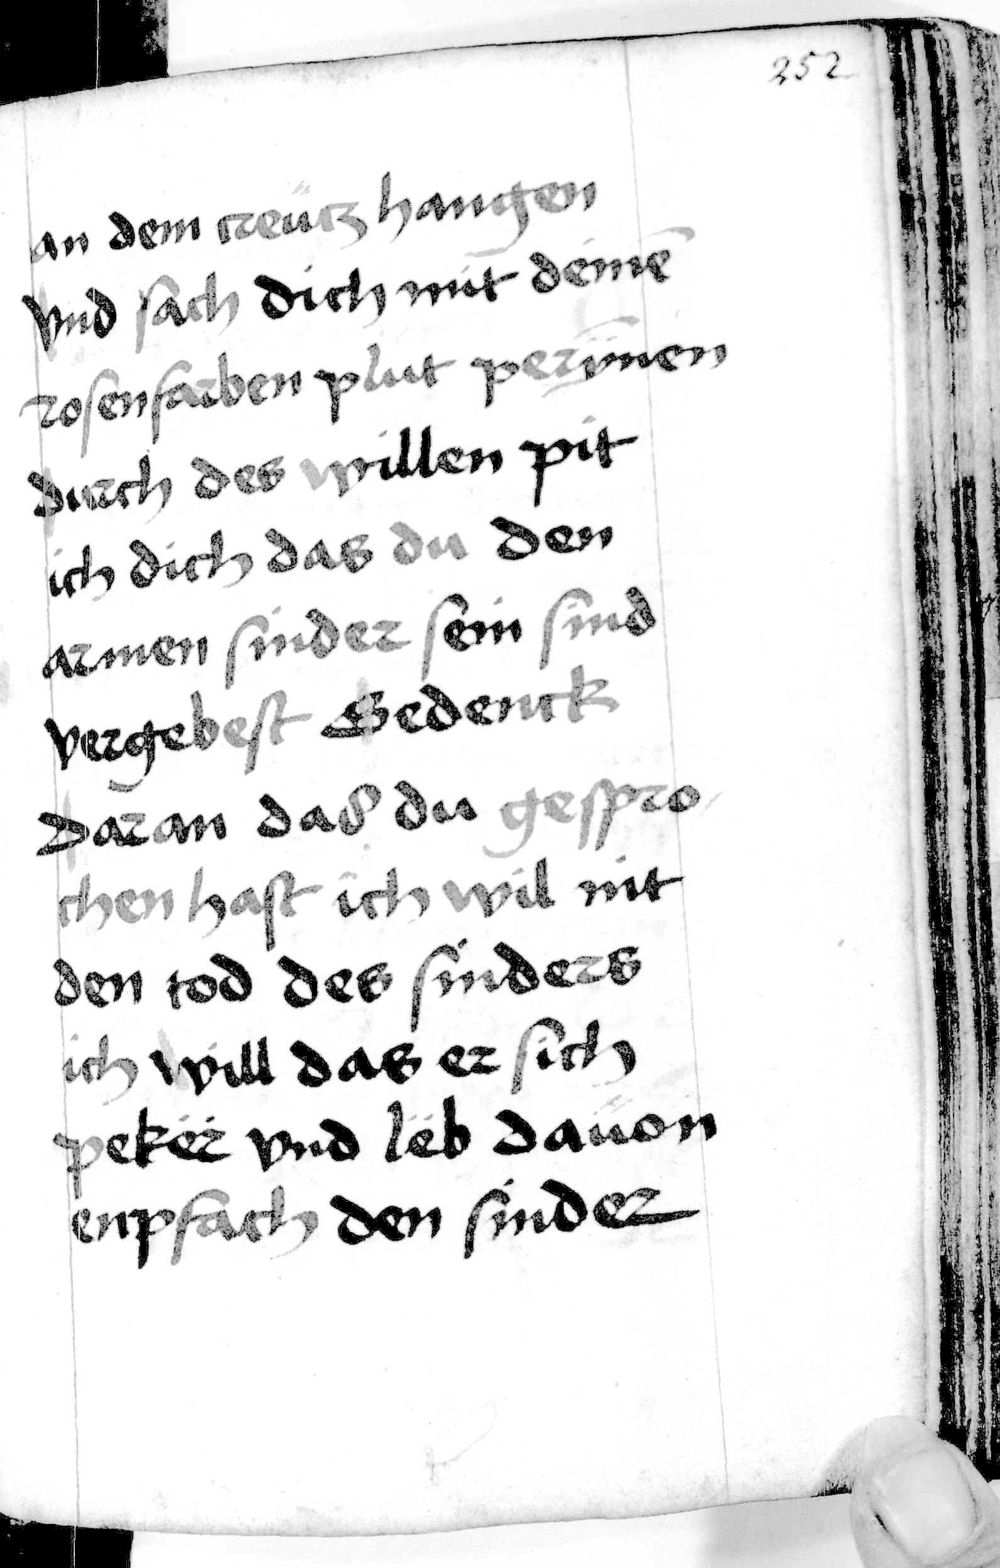 252
an dem creütz hangen
vnd sach dich mit deinē
rosenfarben plut perỹnen
durch des willen pit
ich dich das du den
armen sinder sein sind
vergebest Gedenck
daran das du gespro
chen hast ich wil nit
den tod des sinders
ich will das er sich
pekër vnd lëb dauon
enpfach den sinder